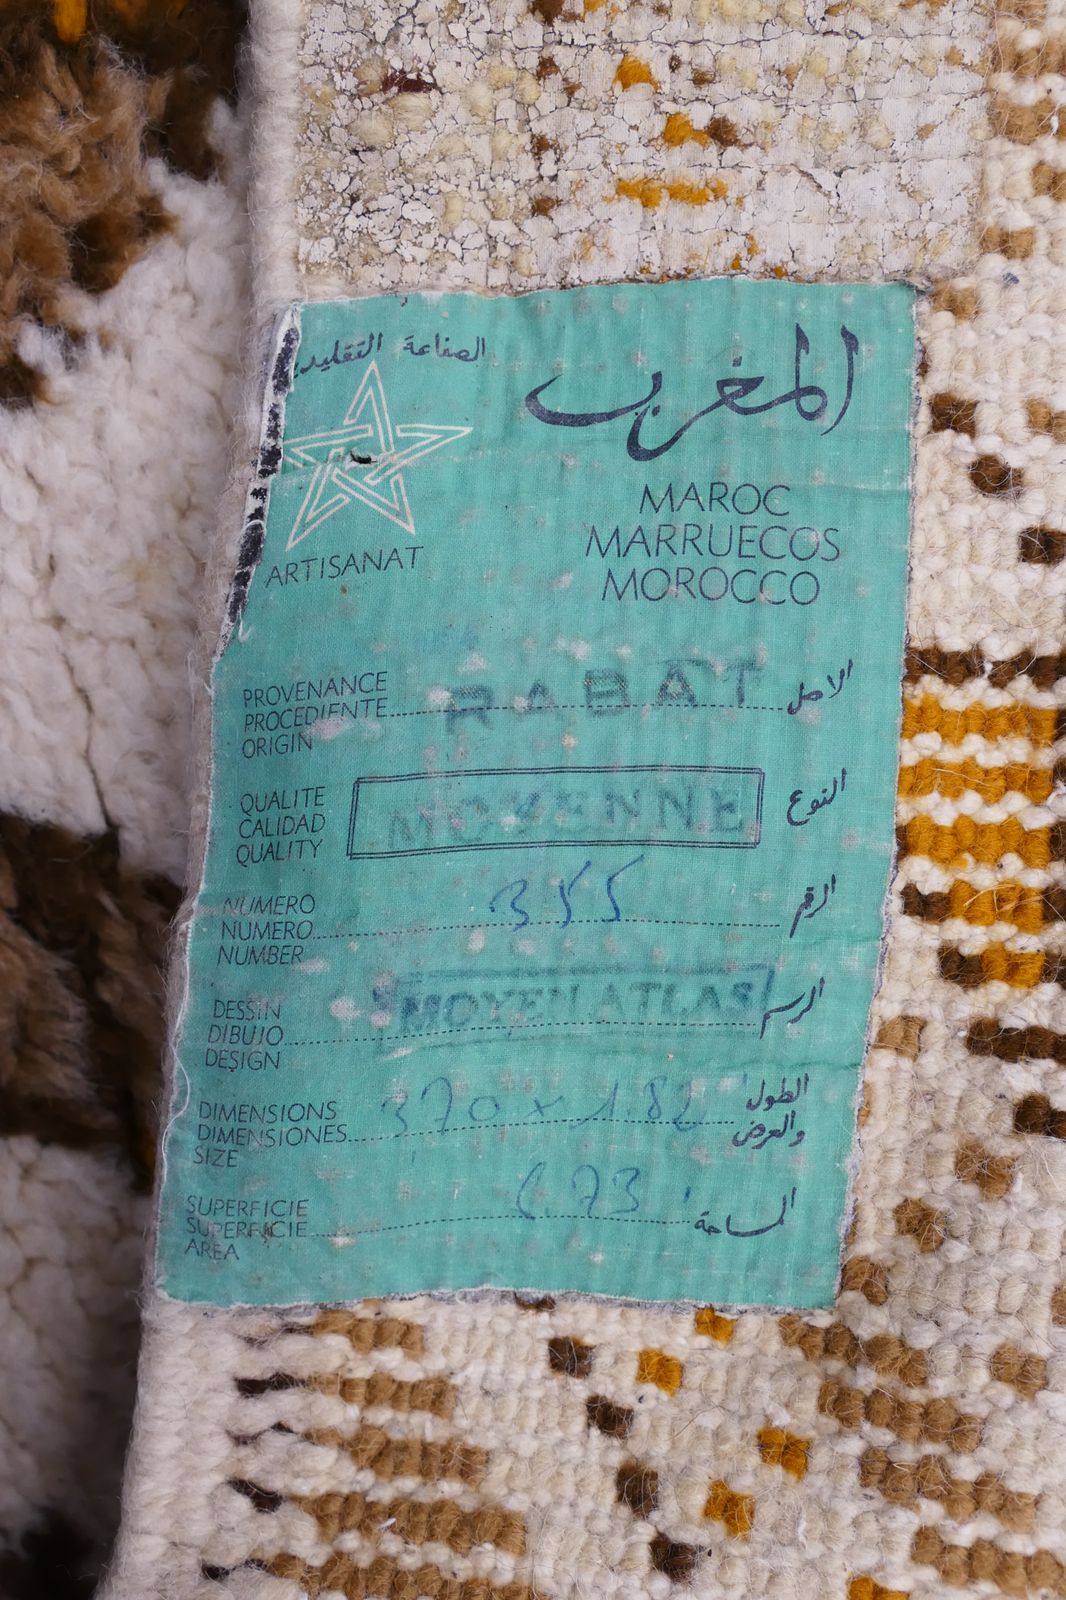 الصناعة التقليدية
المغرب
ARTISANAT
MAROC
MARRUECOS
MOROCCO
PROVENANCE
PROCEDIENTE
ORIGIN
RABAT
الاصل
QUALITE
CALIDAD
QUALITY
MOYENNE
النوع
NUMERO
NUMERO
NUMBER
355
الرقم
DESSIN
DIBUJO
DESIGN
MOYEN ATLAS
الرسم
DIMENSIONS
DIMENSIONES
SIZE
370 x 1.82
الطول
والعرض
SUPERFICIE
SUPERFICIE
AREA
6.73
المساحة